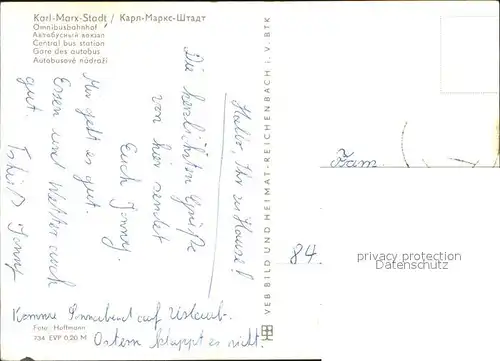 Karl-Marx-Stadt / Карл-Маркс-Штадт
Omnibusbahnhof
Автобусный вокзал
Central bus station
Gare des autobus
Autobusové nádraží
Hallo, Ihr zu Hause!
Die herzlichsten Grüße
von hier sendet
Euch Jonny.
Mir geht es gut.
Essen und Wetter auch
gut. Tschüß Jonny
Komme Sonnabend auf Urlaub.
Ostern klappt es nicht.
Foto: Hoffmann
734 EVP 0,20 M
VEB BILD UND HEIMAT · REICHENBACH i. V. BTK
Fam.
84.
privacy protection
AnsichtskartenVersand.com